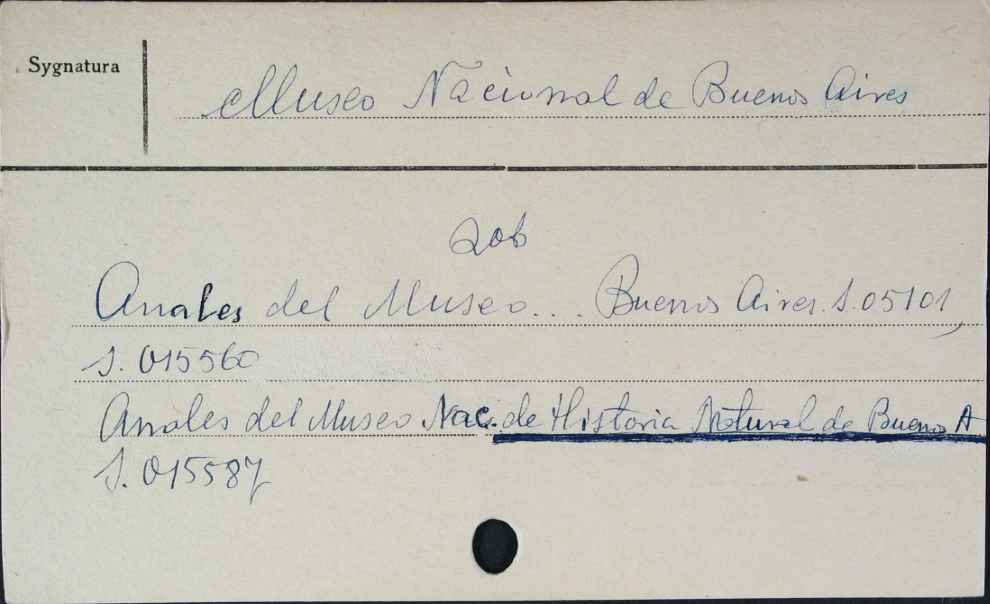 Sygnatura
Museo Nacional de Buenos Aires
zob
Anales del Museo... Buenos Aires S.05101,
S. 015560
Anales del Museo Nac. de Historia Natural de Buenos A
S. 015587